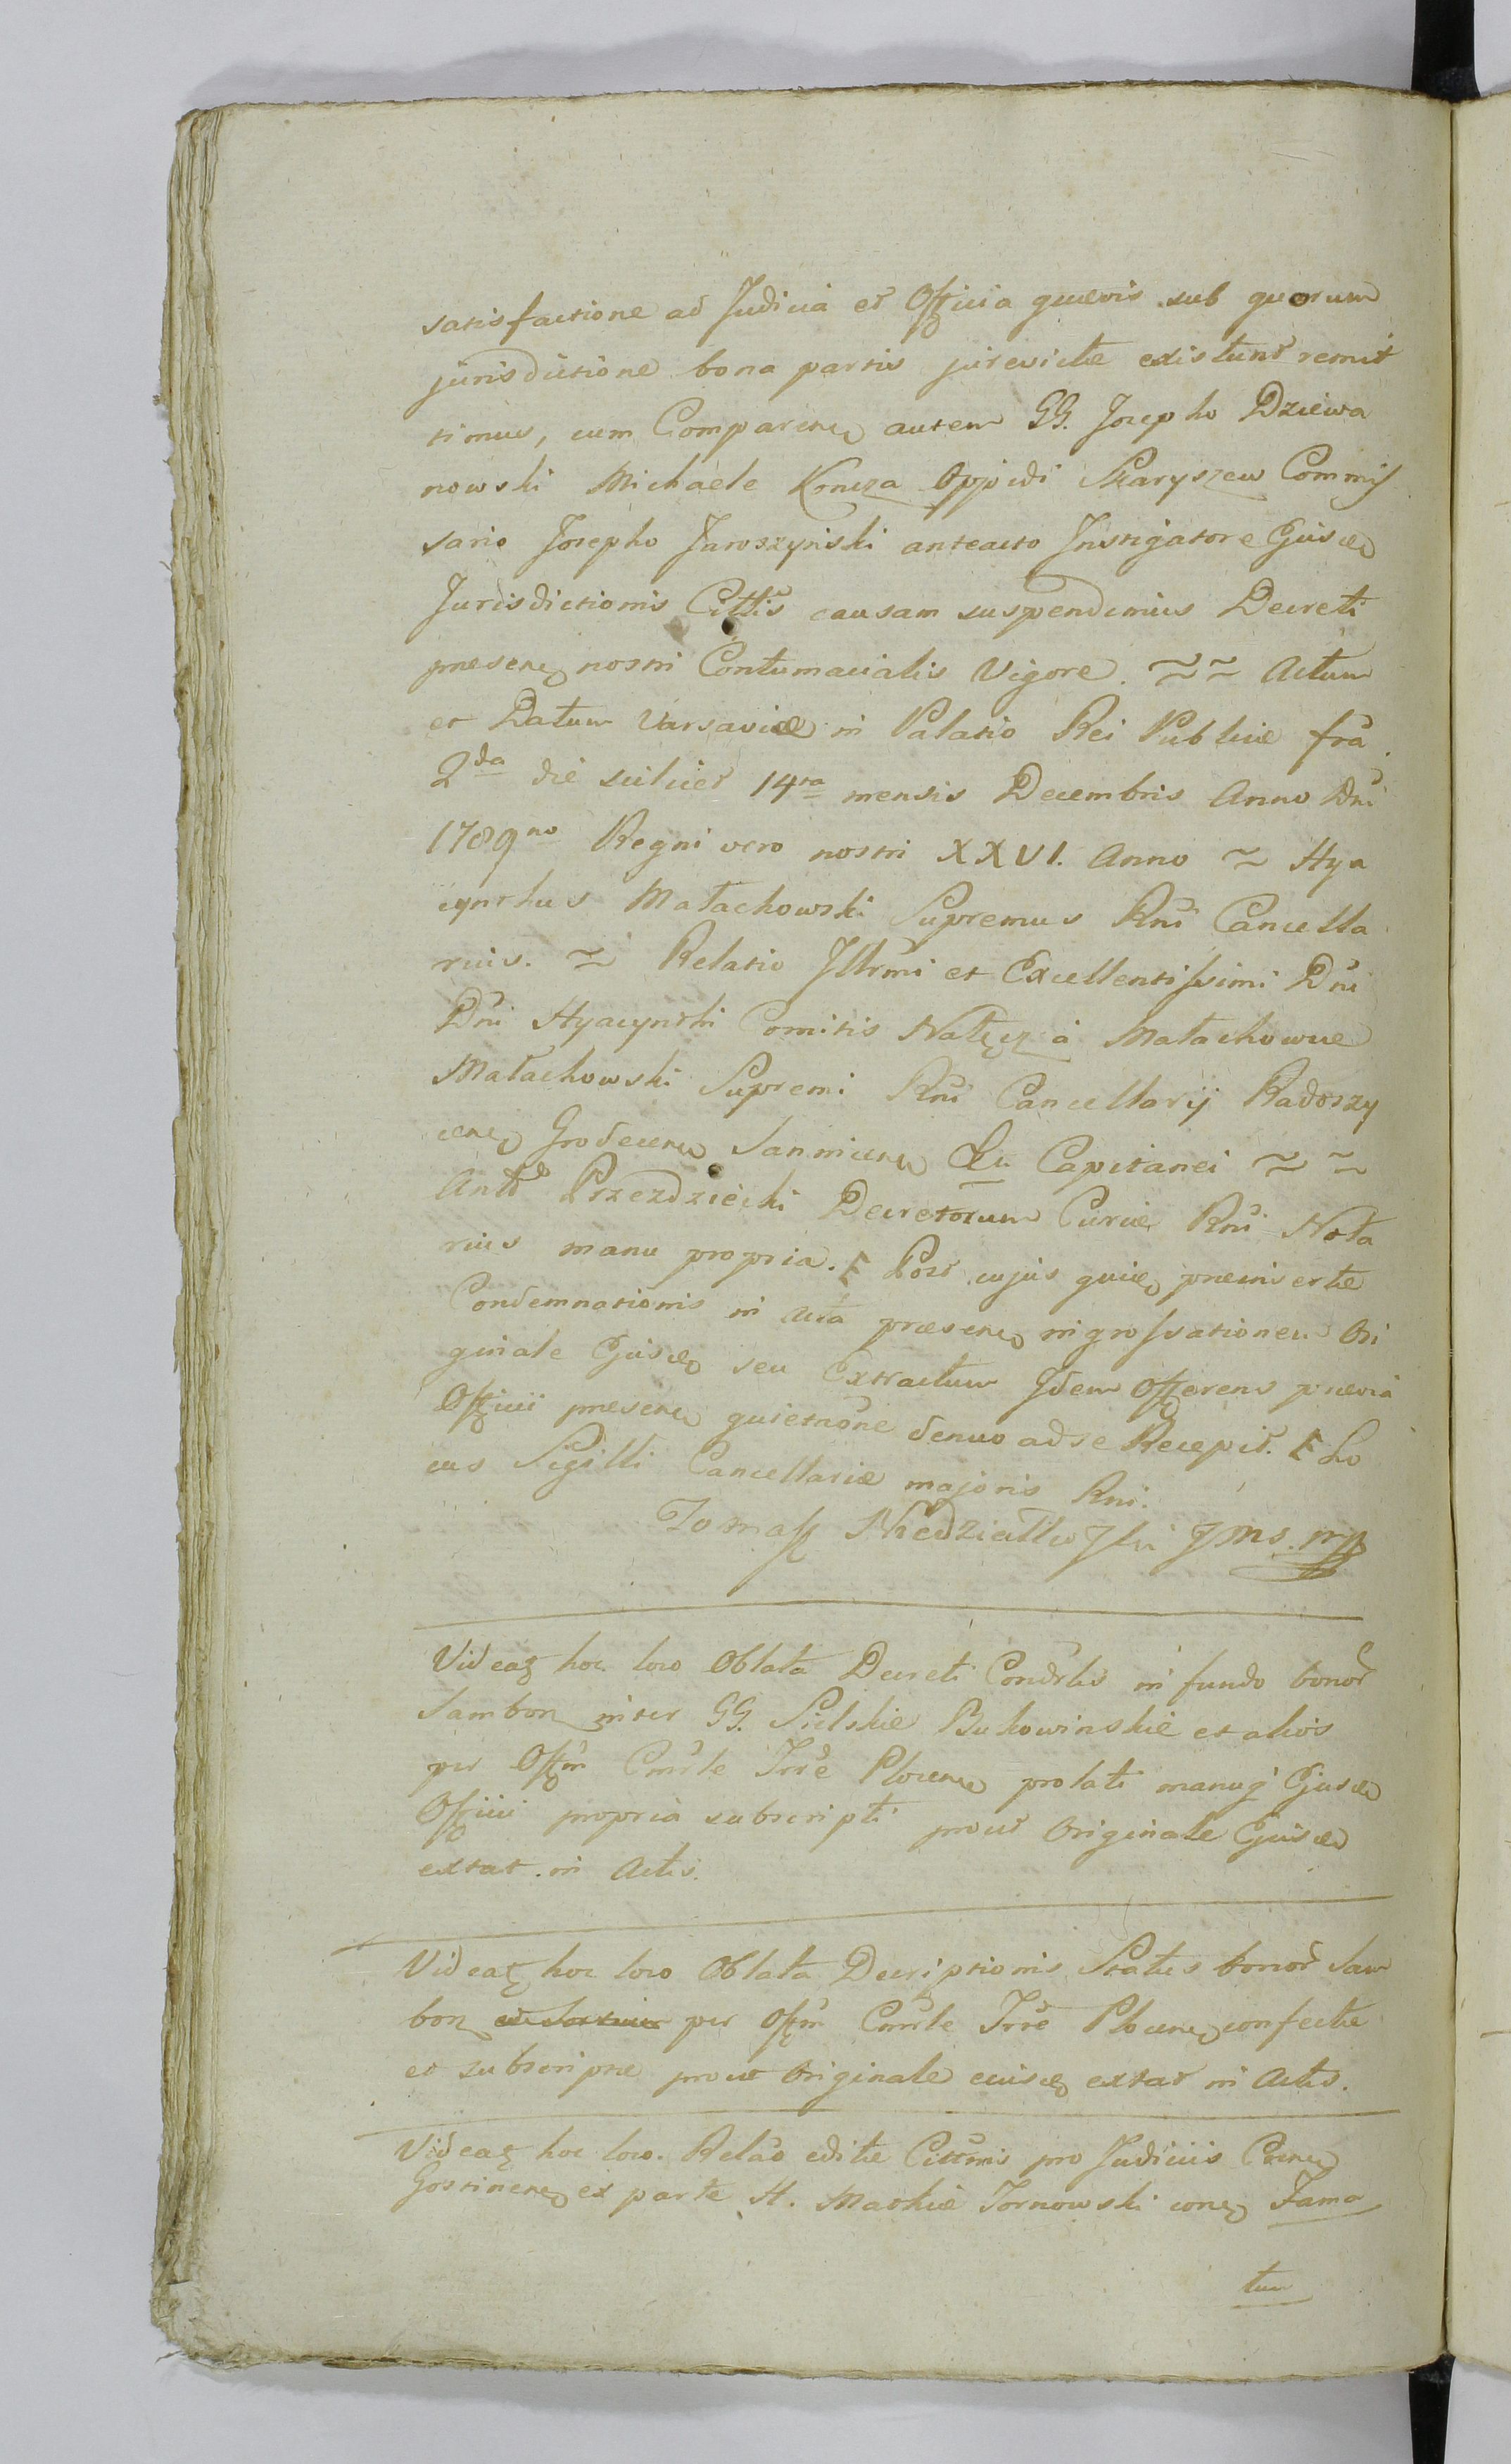 satisfactione ad Judicia et Officia quævis sub quorum
jurisdictione bona partis jurevictæ existunt remit
timus, cum Comparen autem GG. Josepho Dziewa
nowski Michaele Koncza Oppidi Skaryszew Commis
sario Josepho Jaroszyński anteacto Instigatore Ejusd
Jurisdictionis Cittis causam suspendimus Decreti
præsen nostri Contumacialis Vigore. ~ ~ Actum
et Datum Varsaviæ in Palatio Rei Publicæ fra
2da die scilicet 14ta mensis Decembris Anno Dni
1789no Regni vero nostri XXVI. Anno ~ Hya
cynthus Małachowski Supremus Rni Cancella
rius. ~ Relatio Illrmi et Excellentissimi Dni
Dni Hyacynthi Comitis Nałęcz à Małachowice
Małachowski Supremi Rni Cancellarij Radoszy
cen Grodecen Sannicen &c. Capitanei ~ ~
Antt Przezdziecki Decretorum Curiæ Rni Nota
rius manu propria. Post cujus quid præinsertæ
Condemnationis in Acta præsen ingrossationem Ori
ginale Ejusd seu Extractum Idem Offerens præviá
Officii præsen quietnóne denuo ad se Recepit. Lo
cus Sigilli Cancellariæ majoris Rni.
Tomasz Niedziałkowski mp
Videat hoc loco Oblata Decreti Condrlis in fundo bonor
Samborz inter GG. Sielskie Bukowinskie et alios
per Offm Cmrle Trre Plocen prolati manuq Ejusd
Officii propria subscripti prout Originale Ejusd
extat in Actis.
Videat hoc loco Oblata Descriptionis Status bonor Sam
borz per Offm Cmrle Trre Plocen confectæ
et subscriptæ prout Originale eiusd extat in Actis.
Videat hoc loco. Relao editæ Cittnis pro Judiciis
Gostinen ex parte M. Mathiæ Tornowski con Fama
tum